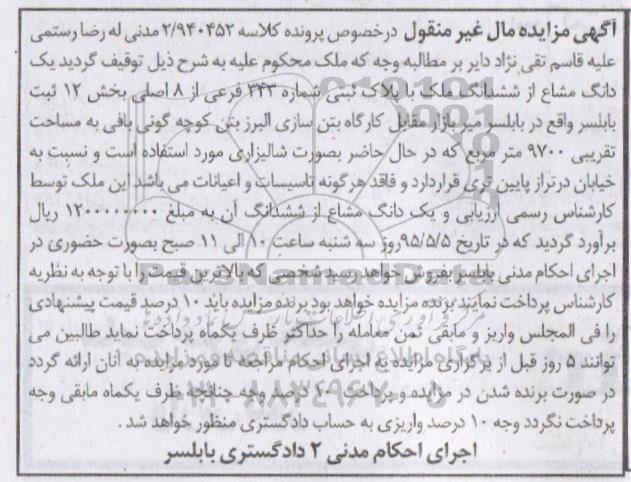 آگهی مزایده مال غیر منقول درخصوص پرونده کلاسه ۲/۹۴۰۴۵۲ مدنی له رضا رستمی
علیه قاسم تقی نژاد دایر بر مطالبه وجه که ملک محکوم علیه به شرح ذیل توقیف گردید یک
دانگ مشاع از ششدانگ ملک با پلاک ثبتی شماره ۳۴۳ فرعی از ۸ اصلی بخش ۱۲ ثبت
بابلسر واقع در بابلسر میر بازار مقابل کارگاه بتن سازی البرز بتن کوچه گونی بافی به مساحت
تقریبی ۹۷۰۰ متر مربع که در حال حاضر بصورت شالیزاری مورد استفاده است و نسبت به
خیابان درتراز پایین تری قراردارد و فاقد هرگونه تاسیسات و اعیانات می باشد این ملک توسط
کارشناس رسمی ارزیابی و یک دانگ مشاع از ششدانگ آن به مبلغ ۱۲۰۰۰۰۰۰۰۰ ریال
برآورد گردید که در تاریخ ۹۵/۵/۵روز سه شنبه ساعت ۱۰ الی ۱۱ صبح بصورت حضوری در
اجرای احکام مدنی بابلسر بفروش خواهد رسید شخصی که بالاترین قیمت را با توجه به نظریه
کارشناس پرداخت نمایند برنده مزایده خواهد بود برنده مزایده باید ۱۰ درصد قیمت پیشنهادی
را فی المجلس واریز و مابقی ثمن معامله را حداکثر ظرف یکماه پرداخت نماید طالبین می
توانند ۵ روز قبل از برگزاری مزایده به اجرای احکام مراجعه تا مورد مزایده به آنان ارائه گردد
در صورت برنده شدن در مزایده و پرداخت ۱۰ درصد وجه چنانچه ظرف یکماه مابقی وجه
پرداخت نگردد وجه ۱۰ درصد واریزی به حساب دادگستری منظور خواهد شد .
اجرای احکام مدنی ۲ دادگستری بابلسر
ParsNamadData